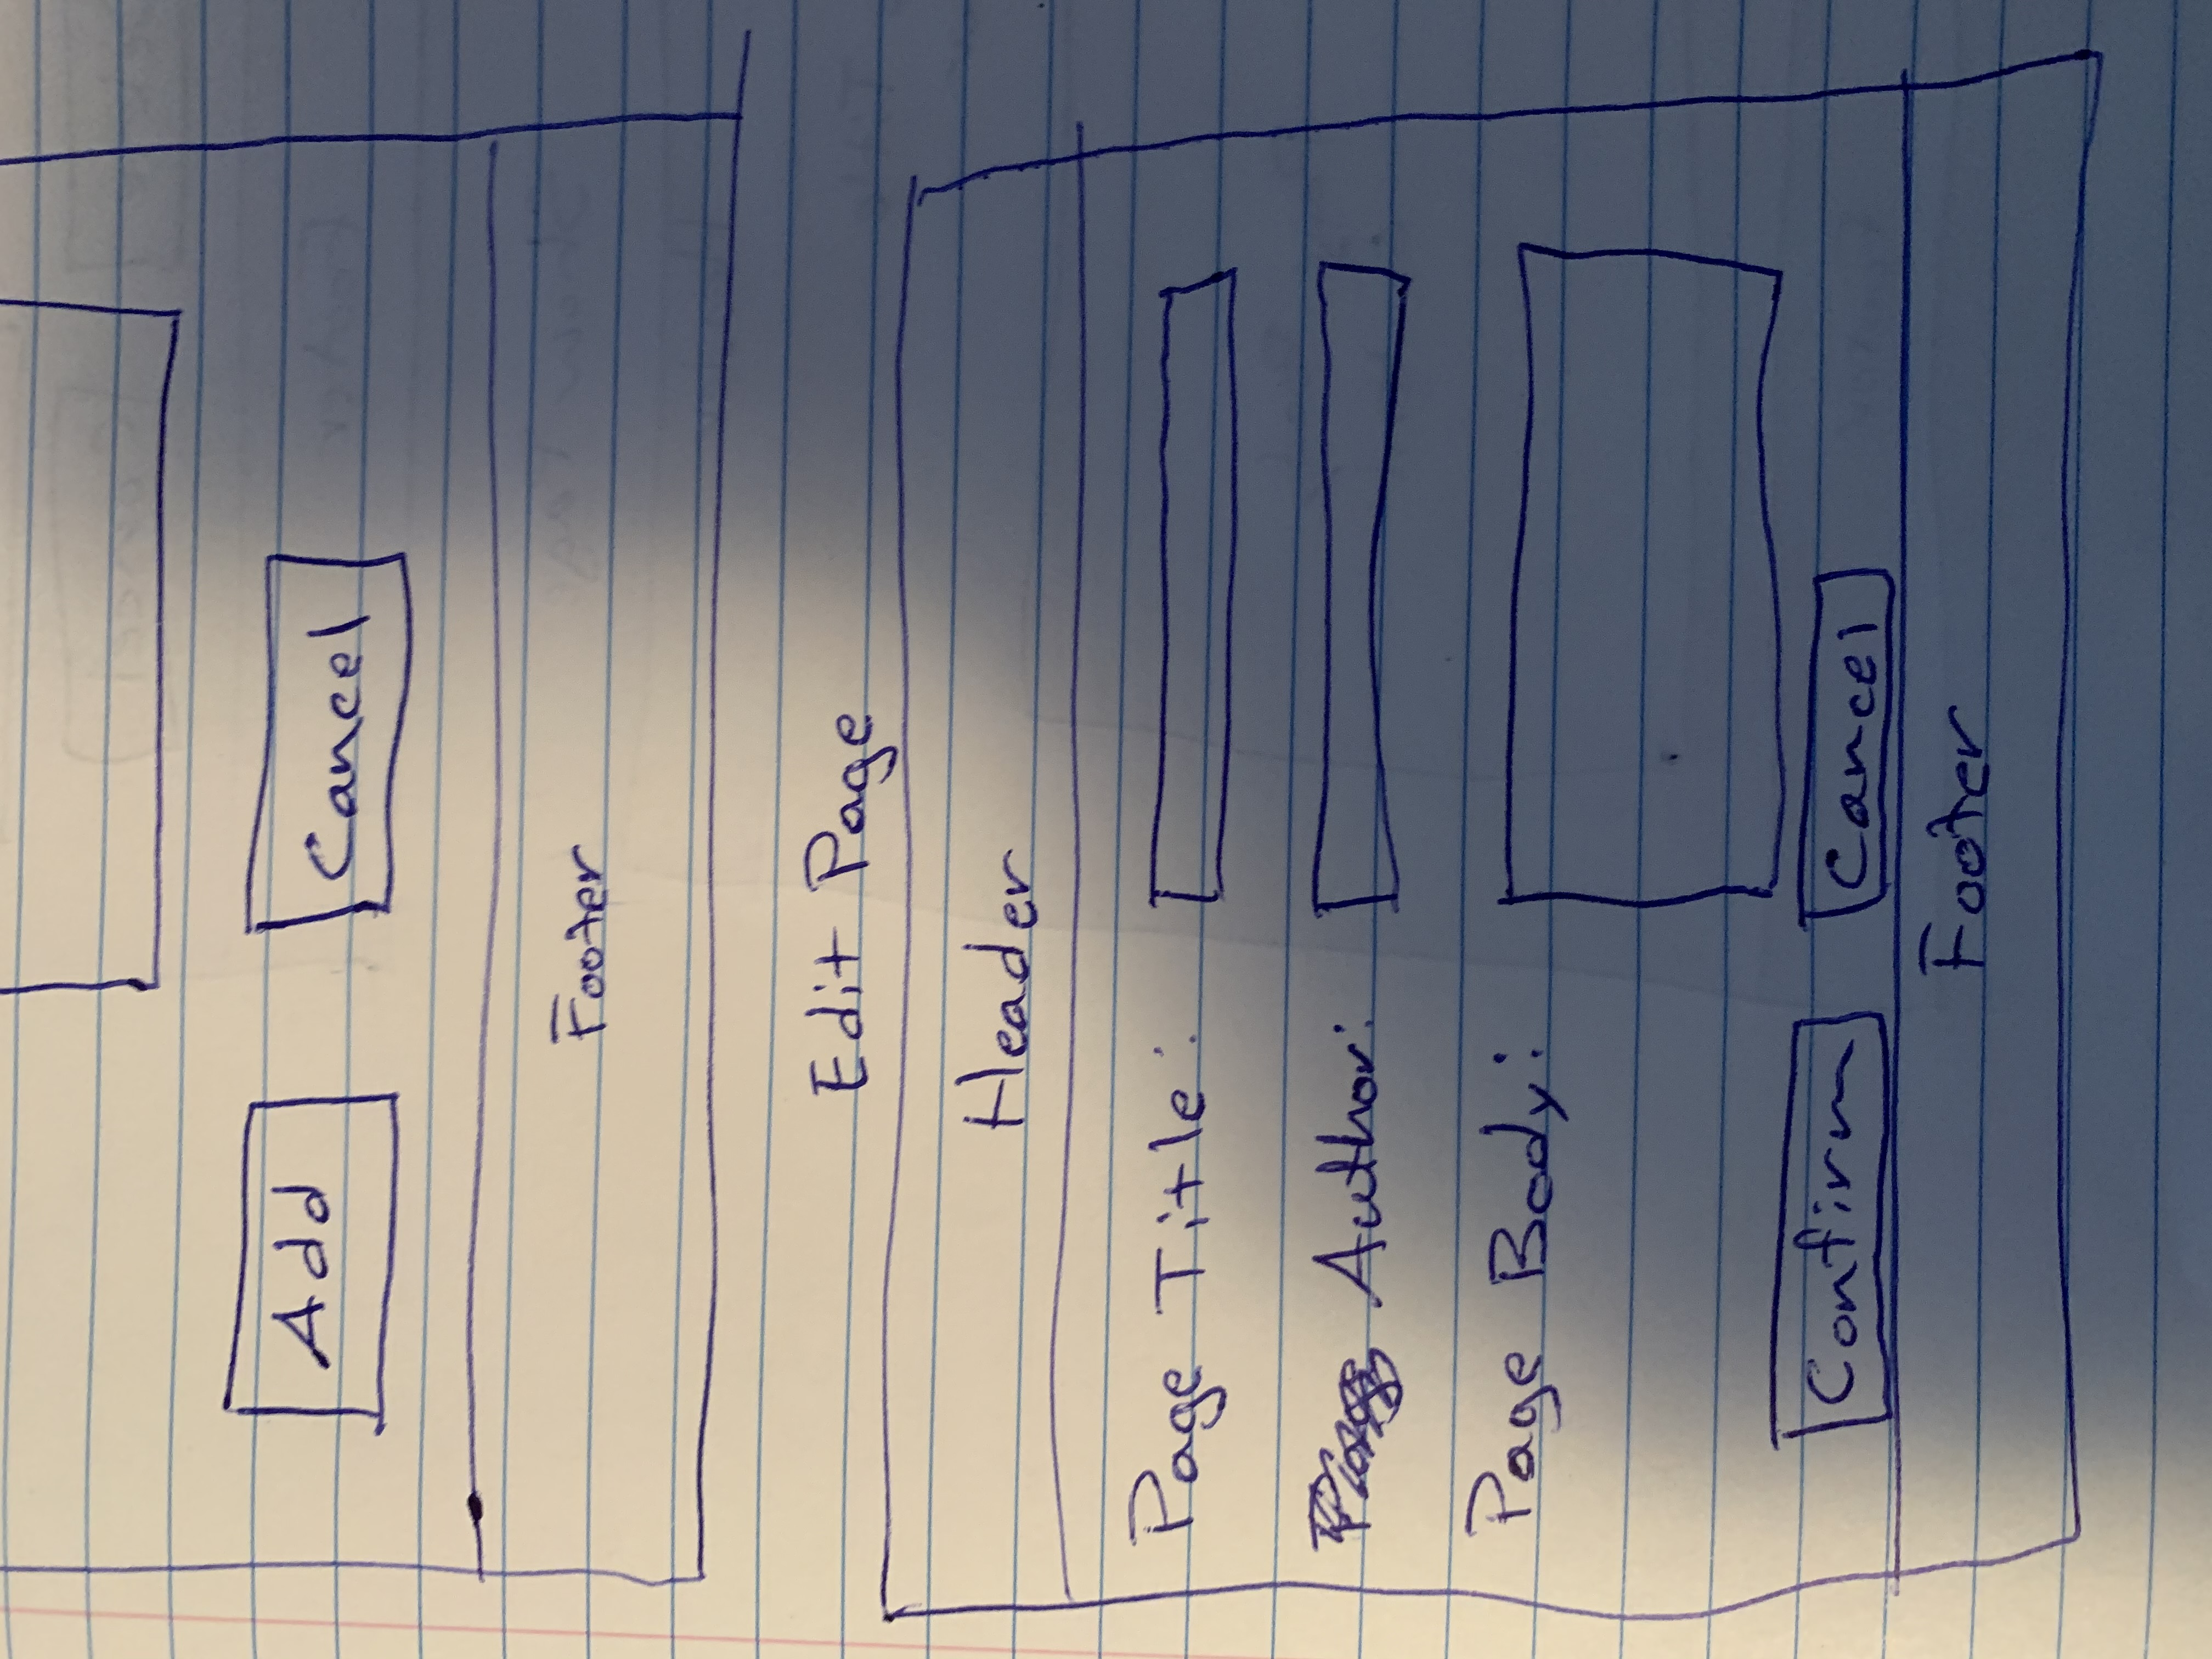 Add Cancel
Footer
Edit Page
Header
Page Title:
Author:
Page Body:
Confirm Cancel
Footer